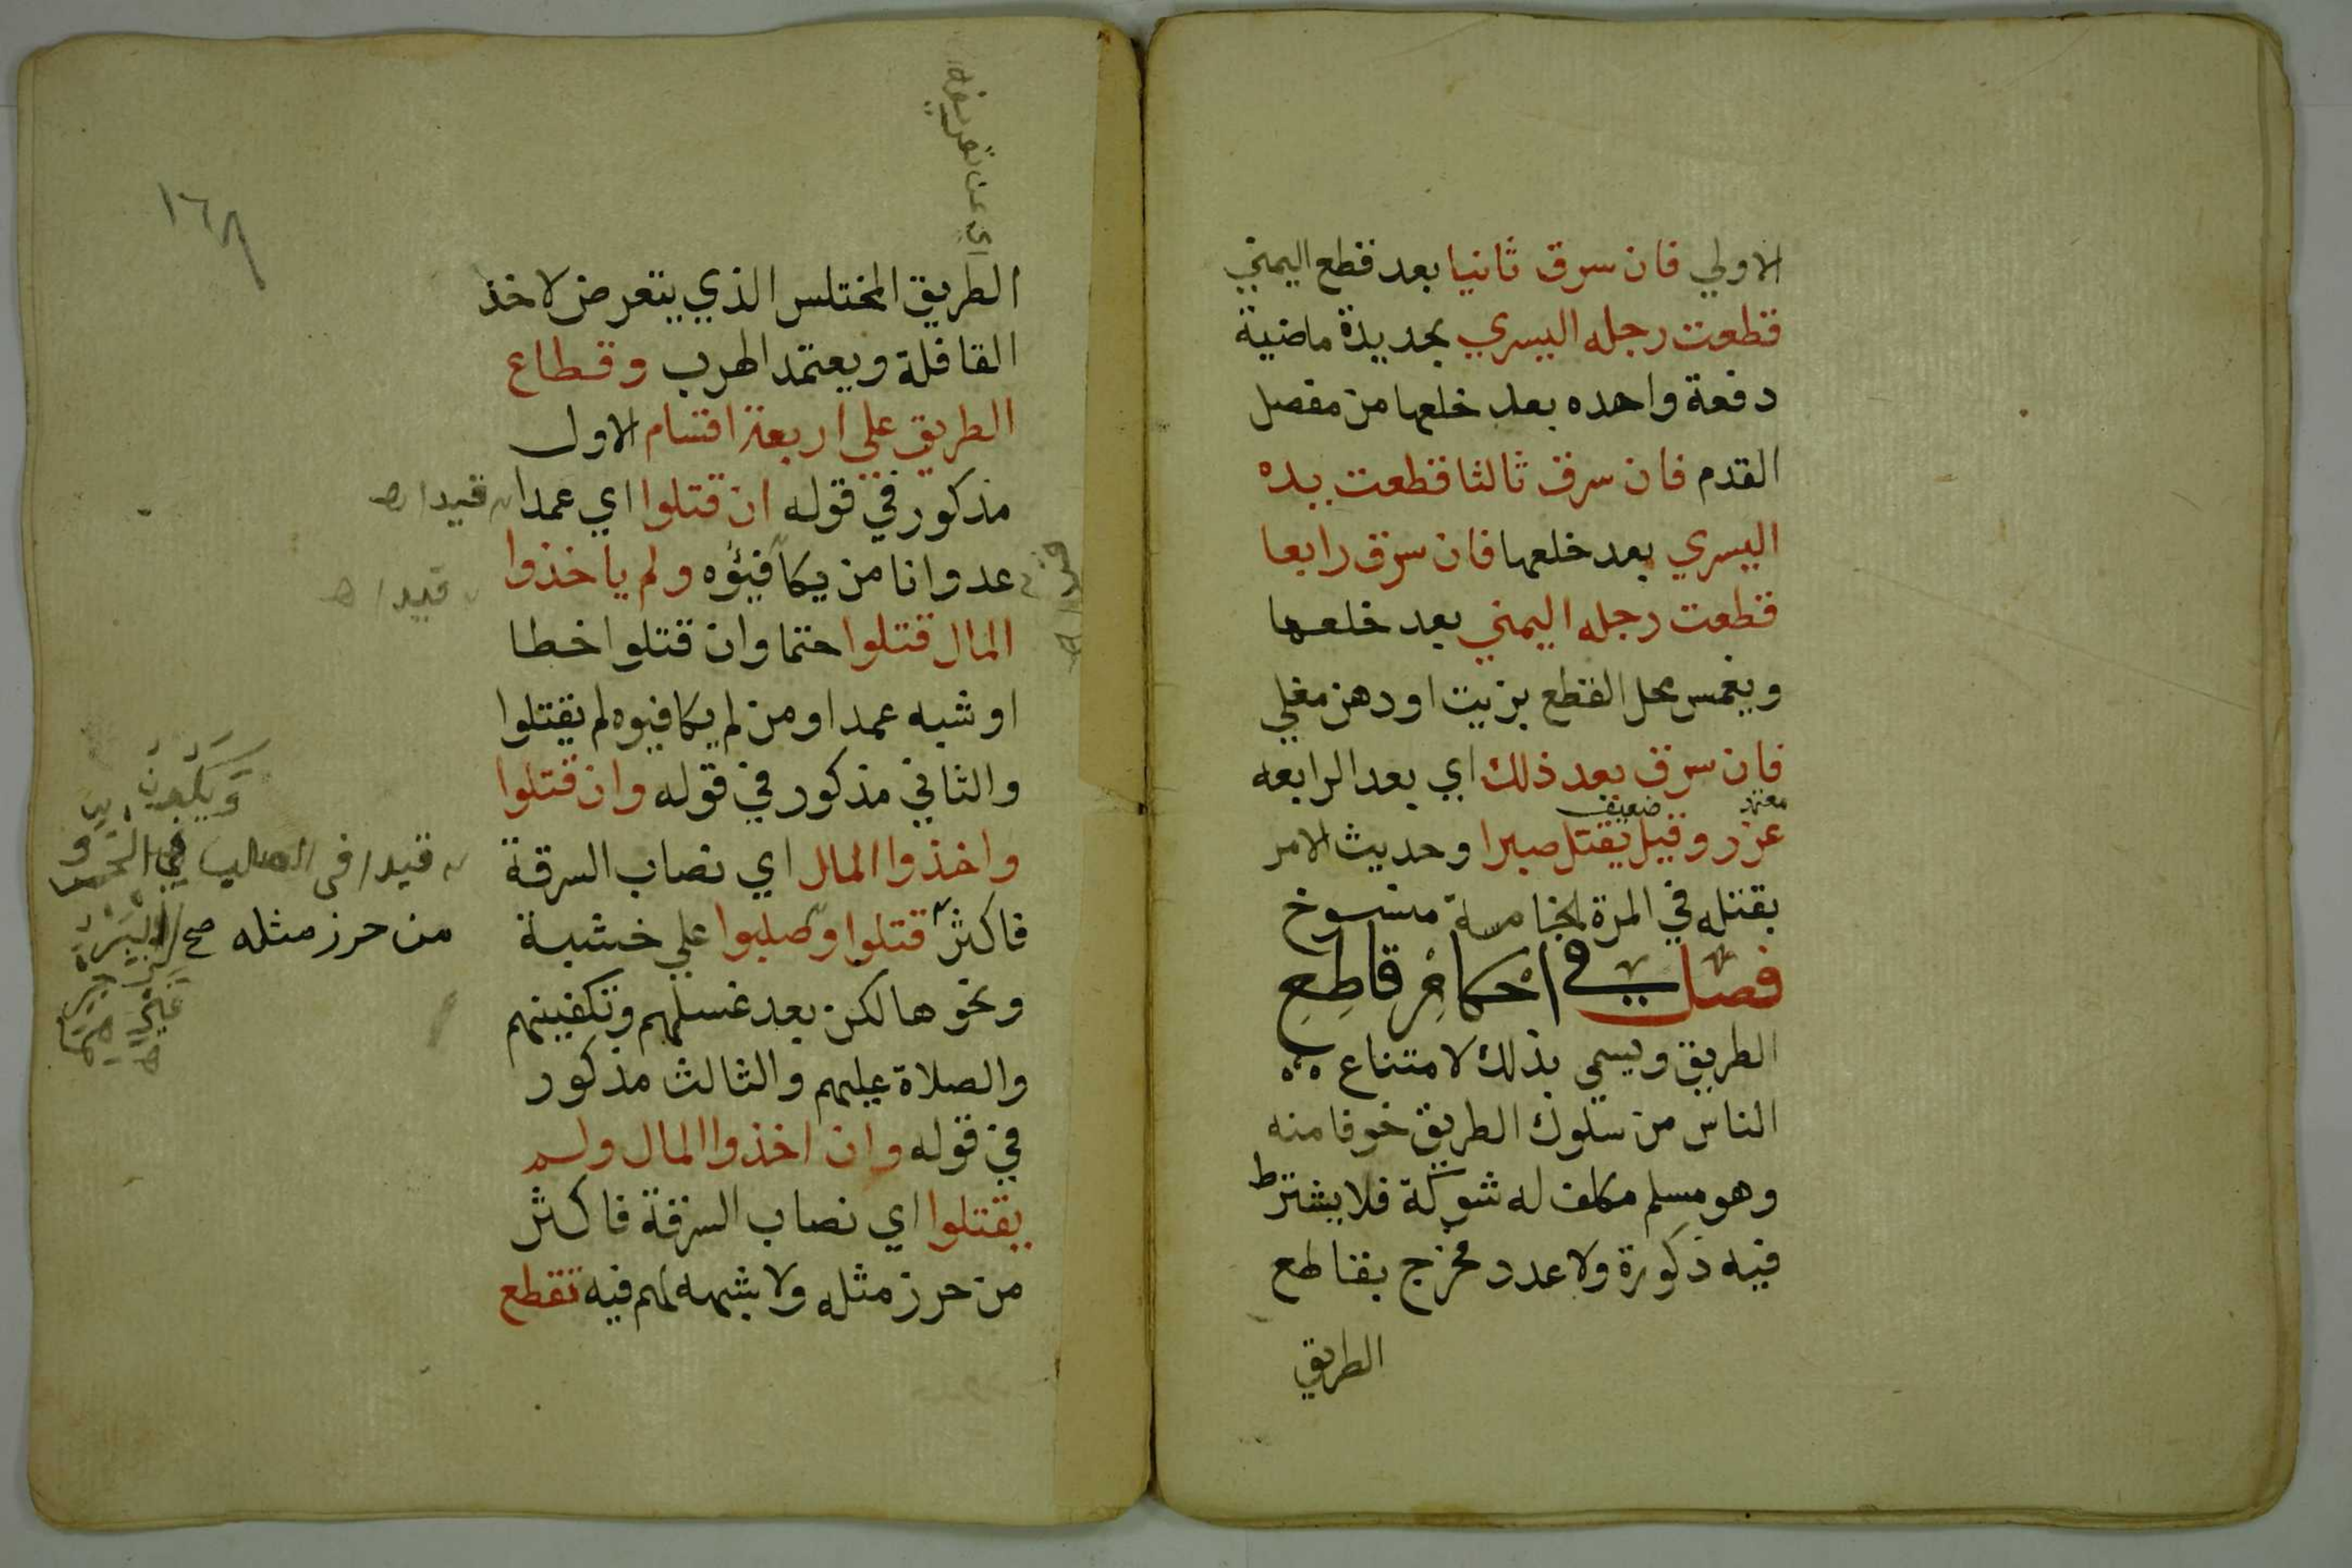 الاولي فان سرق ثانيا بعد قطع اليمني
قطعت رجله اليسري بحديدة ماضية
دفعة واحده بعد خلعها من مفصل
القدم فان سرق ثالثا قطعت يده
اليسري بعد خلعها فان سرق رابعا
قطعت رجله اليمني بعد خلعها
ويغمس محل القطع بزيت او دهن مغلي
فان سرق بعد ذلك اي بعد الرابعه
معتمد ضعيف
عزر وقيل يقتل صبرا وحديث الامر
بقتله في المرة الخامسة منسوخ
فصل في احكام قاطع
الطريق ويسمي بذلك لامتناع
الناس من سلوك الطريق خوفا منه
وهو مسلم مكلف له شوكة فلا يشترط
فيه ذكورة ولا عدد مخرج بقاطع
الطريق
١٦٨
اي عن تعريفه
الطريق المختلس الذي يتعرض لاخذ
القافلة ويعتمد الهرب وقطاع
الطريق علي اربعة اقسام الاول
مذكور في قوله ان قتلوا اي عمدا
قيد
عدوانا من يكافيؤه ولم ياخذوا
قيد
المال قتلوا حتما وان قتلوا خطا
او شبه عمد او من لم يكافيوه لم يقتلوا
والثاني مذكور في قوله وان قتلوا
واخذوا المال اي نصاب السرقة
قيد في الصلب
فاكثر قتلوا وصلبوا علي خشبة
من حرز مثله صح
ونحوها لكن بعد غسلهم وتكفينهم
والصلاة عليهم والثالث مذكور
في قوله وان اخذوا المال ولم
يقتلوا اي نصاب السرقة فاكثر
من حرز مثله ولا شبهه لهم فيه تقطع